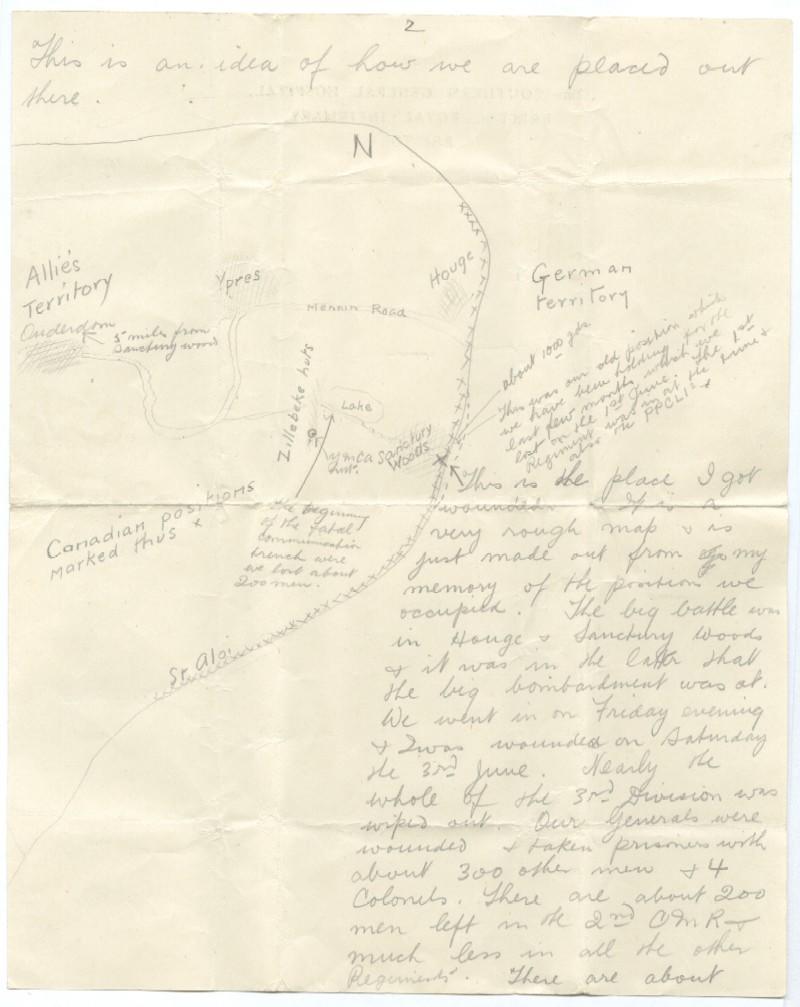 2
This is an idea of how we are placed out
there.
N
Allie's
Territory
Ouderdom
5 miles from
Sanctury wood
Ypres
Mennin Road
Houge
German
territory
about 1000 yds
This was our old position which
we have been holding for the
last few months which we
lost on the 1st June. The 1st
Regiment was in at the time &
also the PPCLI's
Zillebeke huts
Lake
Ymca
hut.
Sanctury
Woods
Canadian positions
marked thus x
The beginning
of the fatal
communication
trench were
we lost about
200 men.
St. Aloi
This is the place I got
wounded. It is a
very rough map & is
just made out from my
memory of the position we
occupied. The big battle was
in Houge & Sanctury Woods
& it was in the latter that
the big bombardment was at.
We went in on Friday evening
& I was wounded on Saturday
the 3rd June. Nearly the
whole of the 3rd Division was
wiped out. Our Generals were
wounded & taken prisoners with
about 300 other men & 4
Colonels. There are about 200
men left in the 2nd CMR &
much less in all the other
Regiments. There are about